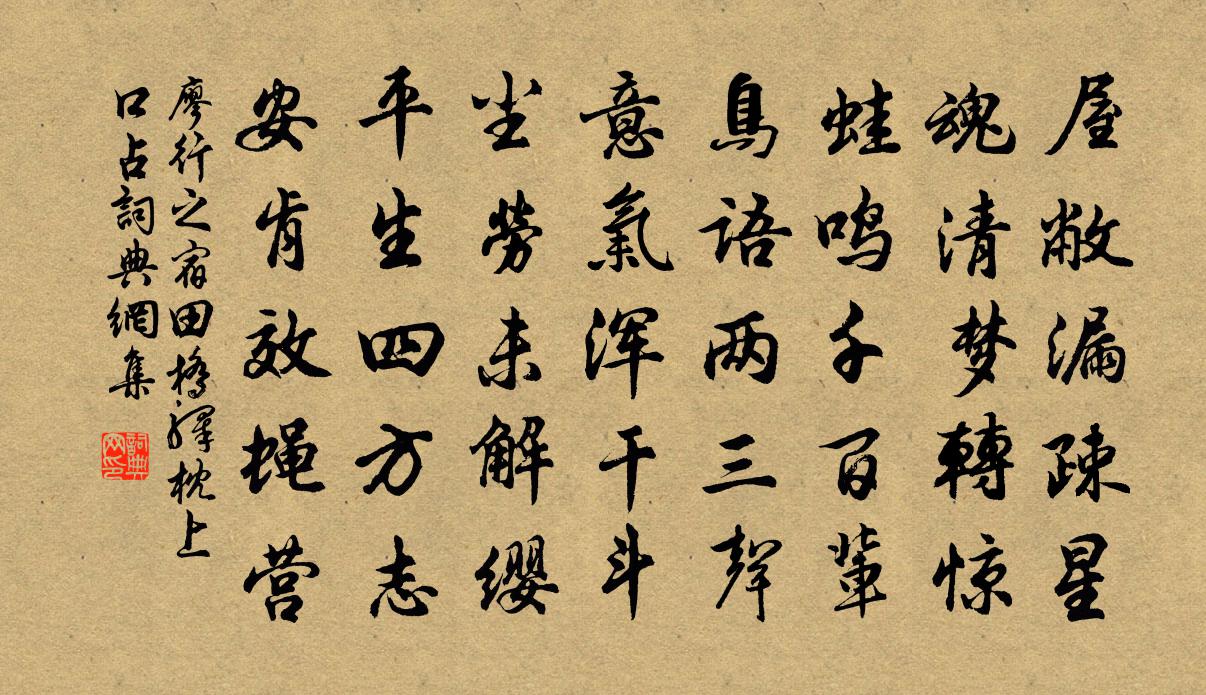 屋敞漏疎星
魂清梦轉惊
蛙鸣千百輩
鳥语两三聲
意氣浑干斗
尘勞未解缨
平生四方志
安肯效蝇营
廖行之宿田橋驛枕上
口占詞典網集
詞典网印